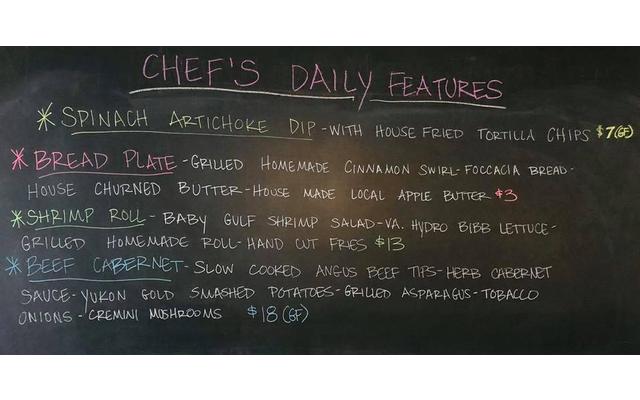 CHEF'S DAILY FEATURES
* SPINACH ARTICHOKE DIP - WITH HOUSE FRIED TORTILLA CHIPS $7 (GF)
* BREAD PLATE - GRILLED HOMEMADE CINNAMON SWIRL - FOCCACIA BREAD -
HOUSE CHURNED BUTTER - HOUSE MADE LOCAL APPLE BUTTER $3
* SHRIMP ROLL - BABY GULF SHRIMP SALAD - VA. HYDRO BIBB LETTUCE -
GRILLED HOMEMADE ROLL - HAND CUT FRIES $13
* BEEF CABERNET - SLOW COOKED ANGUS BEEF TIPS - HERB CABERNET
SAUCE - YUKON GOLD SMASHED POTATOES - GRILLED ASPARAGUS - TOBACCO
ONIONS - CREMINI MUSHROOMS $18 (GF)